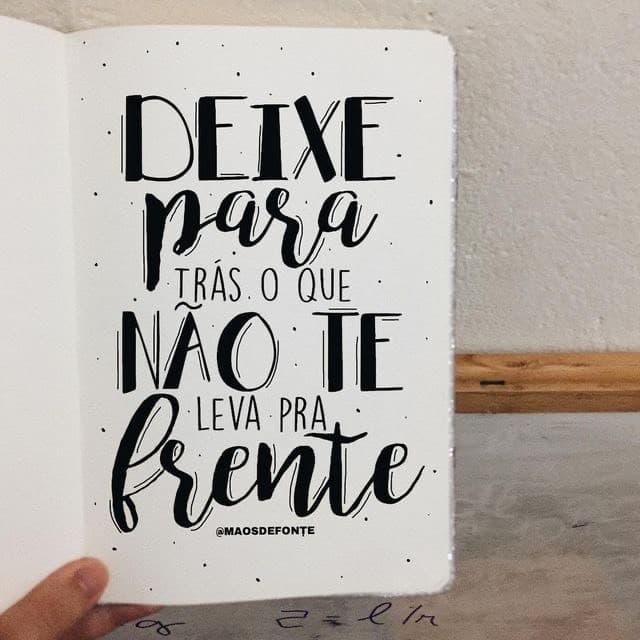 DEIXE
para
TRÁS O QUE
NÃO TE
LEVA PRA
frente
@MAOSDEFONTE
z = l/r